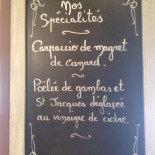 Nos
Spécialités
Carpaccio de magret
de canard.
Poêlée de gambas et
St Jacques déglacée
au vinaigre de cidre.